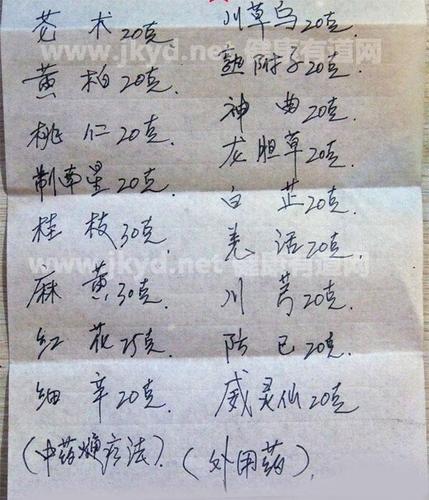 苍术20克 川草乌20克
黄柏20克. 熟附子20克.
桃仁20克. 神曲20克.
制南星20克. 龙胆草20克.
桂枝30克 白芷20克.
麻黄30克. 羌活20克.
红花25克. 川芎20克.
细辛20克. 防己20克.
威灵仙20克
(中药熏疗法). (外用药).
www.jkyd.net 健康有道网
www.jkyd.net 健康有道网